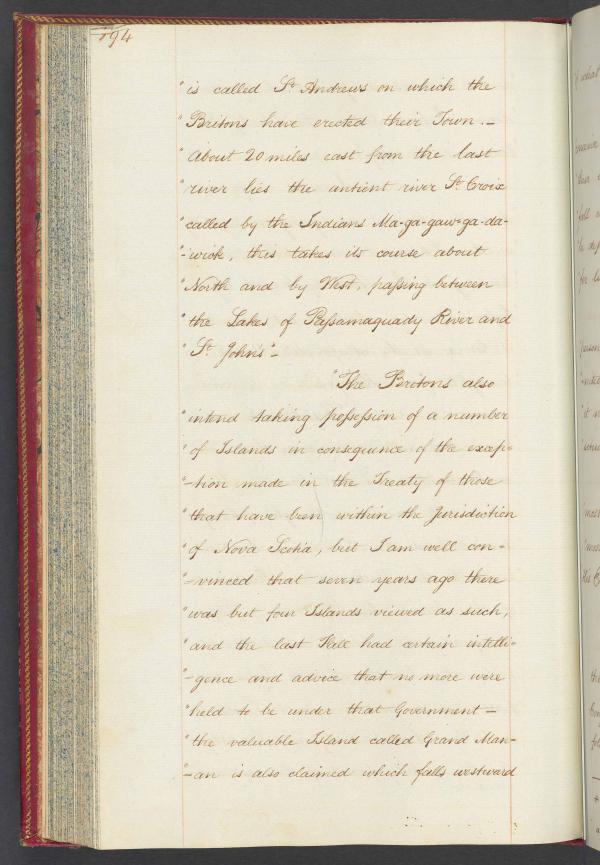 194
" is called St. Andrews on which the
" Britons have erected their Town. –
" About 20 miles east from the last
" river lies the antient river St. Croix
" called by the Indians Ma-ga-gaw-ga-da-
" -wick, this takes its course about
" North and by West, passing between
" the Lakes of Passamaquady River and
" St. John's" –
" The Britons also
" intend taking possession of a number
" of Islands in consequence of the excep-
" -tion made in the Treaty of those
" that have been within the Jurisdiction
" of Nova Scotia, but I am well con-
" -vinced that seven years ago there
" was but four Islands viewed as such,
" and the last Fall had certain intelli-
" -gence and advice that no more were
" held to be under that Government –
" the valuable Island called Grand Man-
" -an is also claimed which falls westward